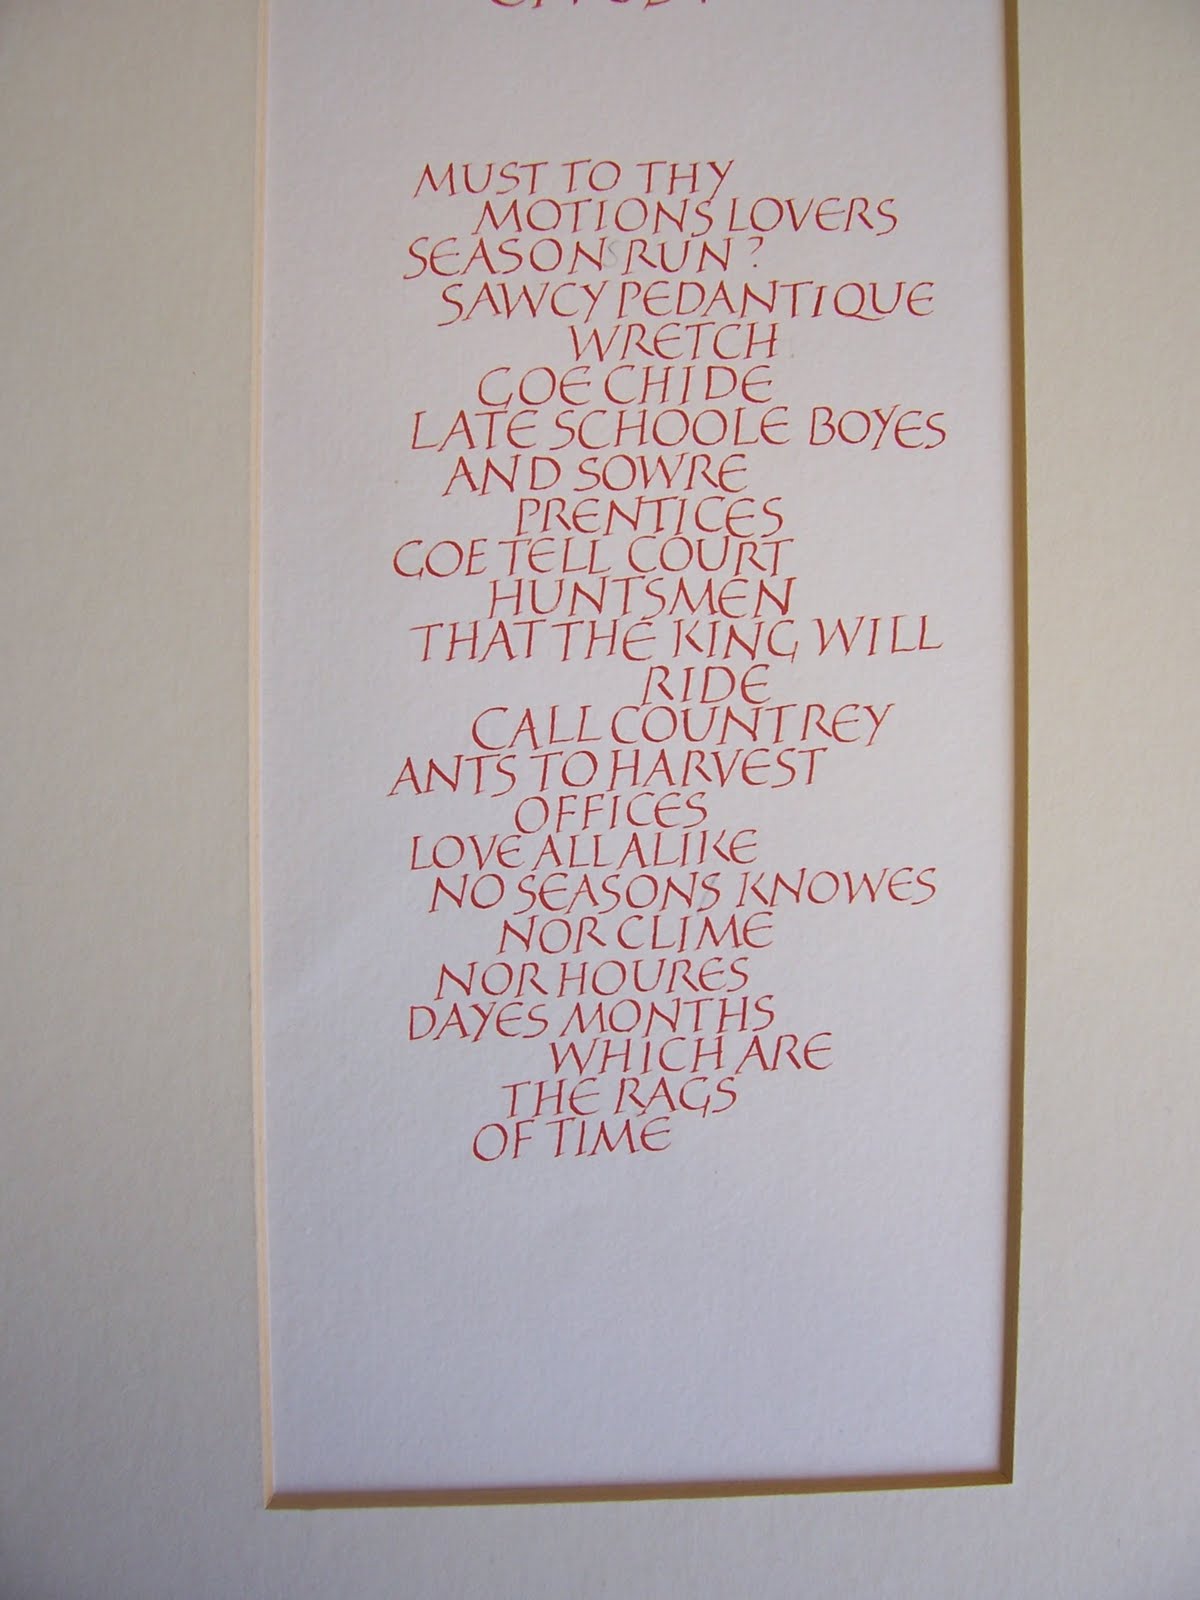 MUST TO THY
MOTIONS LOVERS
SEASONS RUN?
SAWCY PEDANTIQUE
WRETCH
GOE CHIDE
LATE SCHOOLE BOYES
AND SOWRE
PRENTICES
GOE TELL COURT
HUNTSMEN
THAT THE KING WILL
RIDE
CALL COUNTREY
ANTS TO HARVEST
OFFICES
LOVE ALL ALIKE
NO SEASONS KNOWES
NOR CLIME
NOR HOURES
DAYES MONTHS
WHICH ARE
THE RAGS
OF TIME